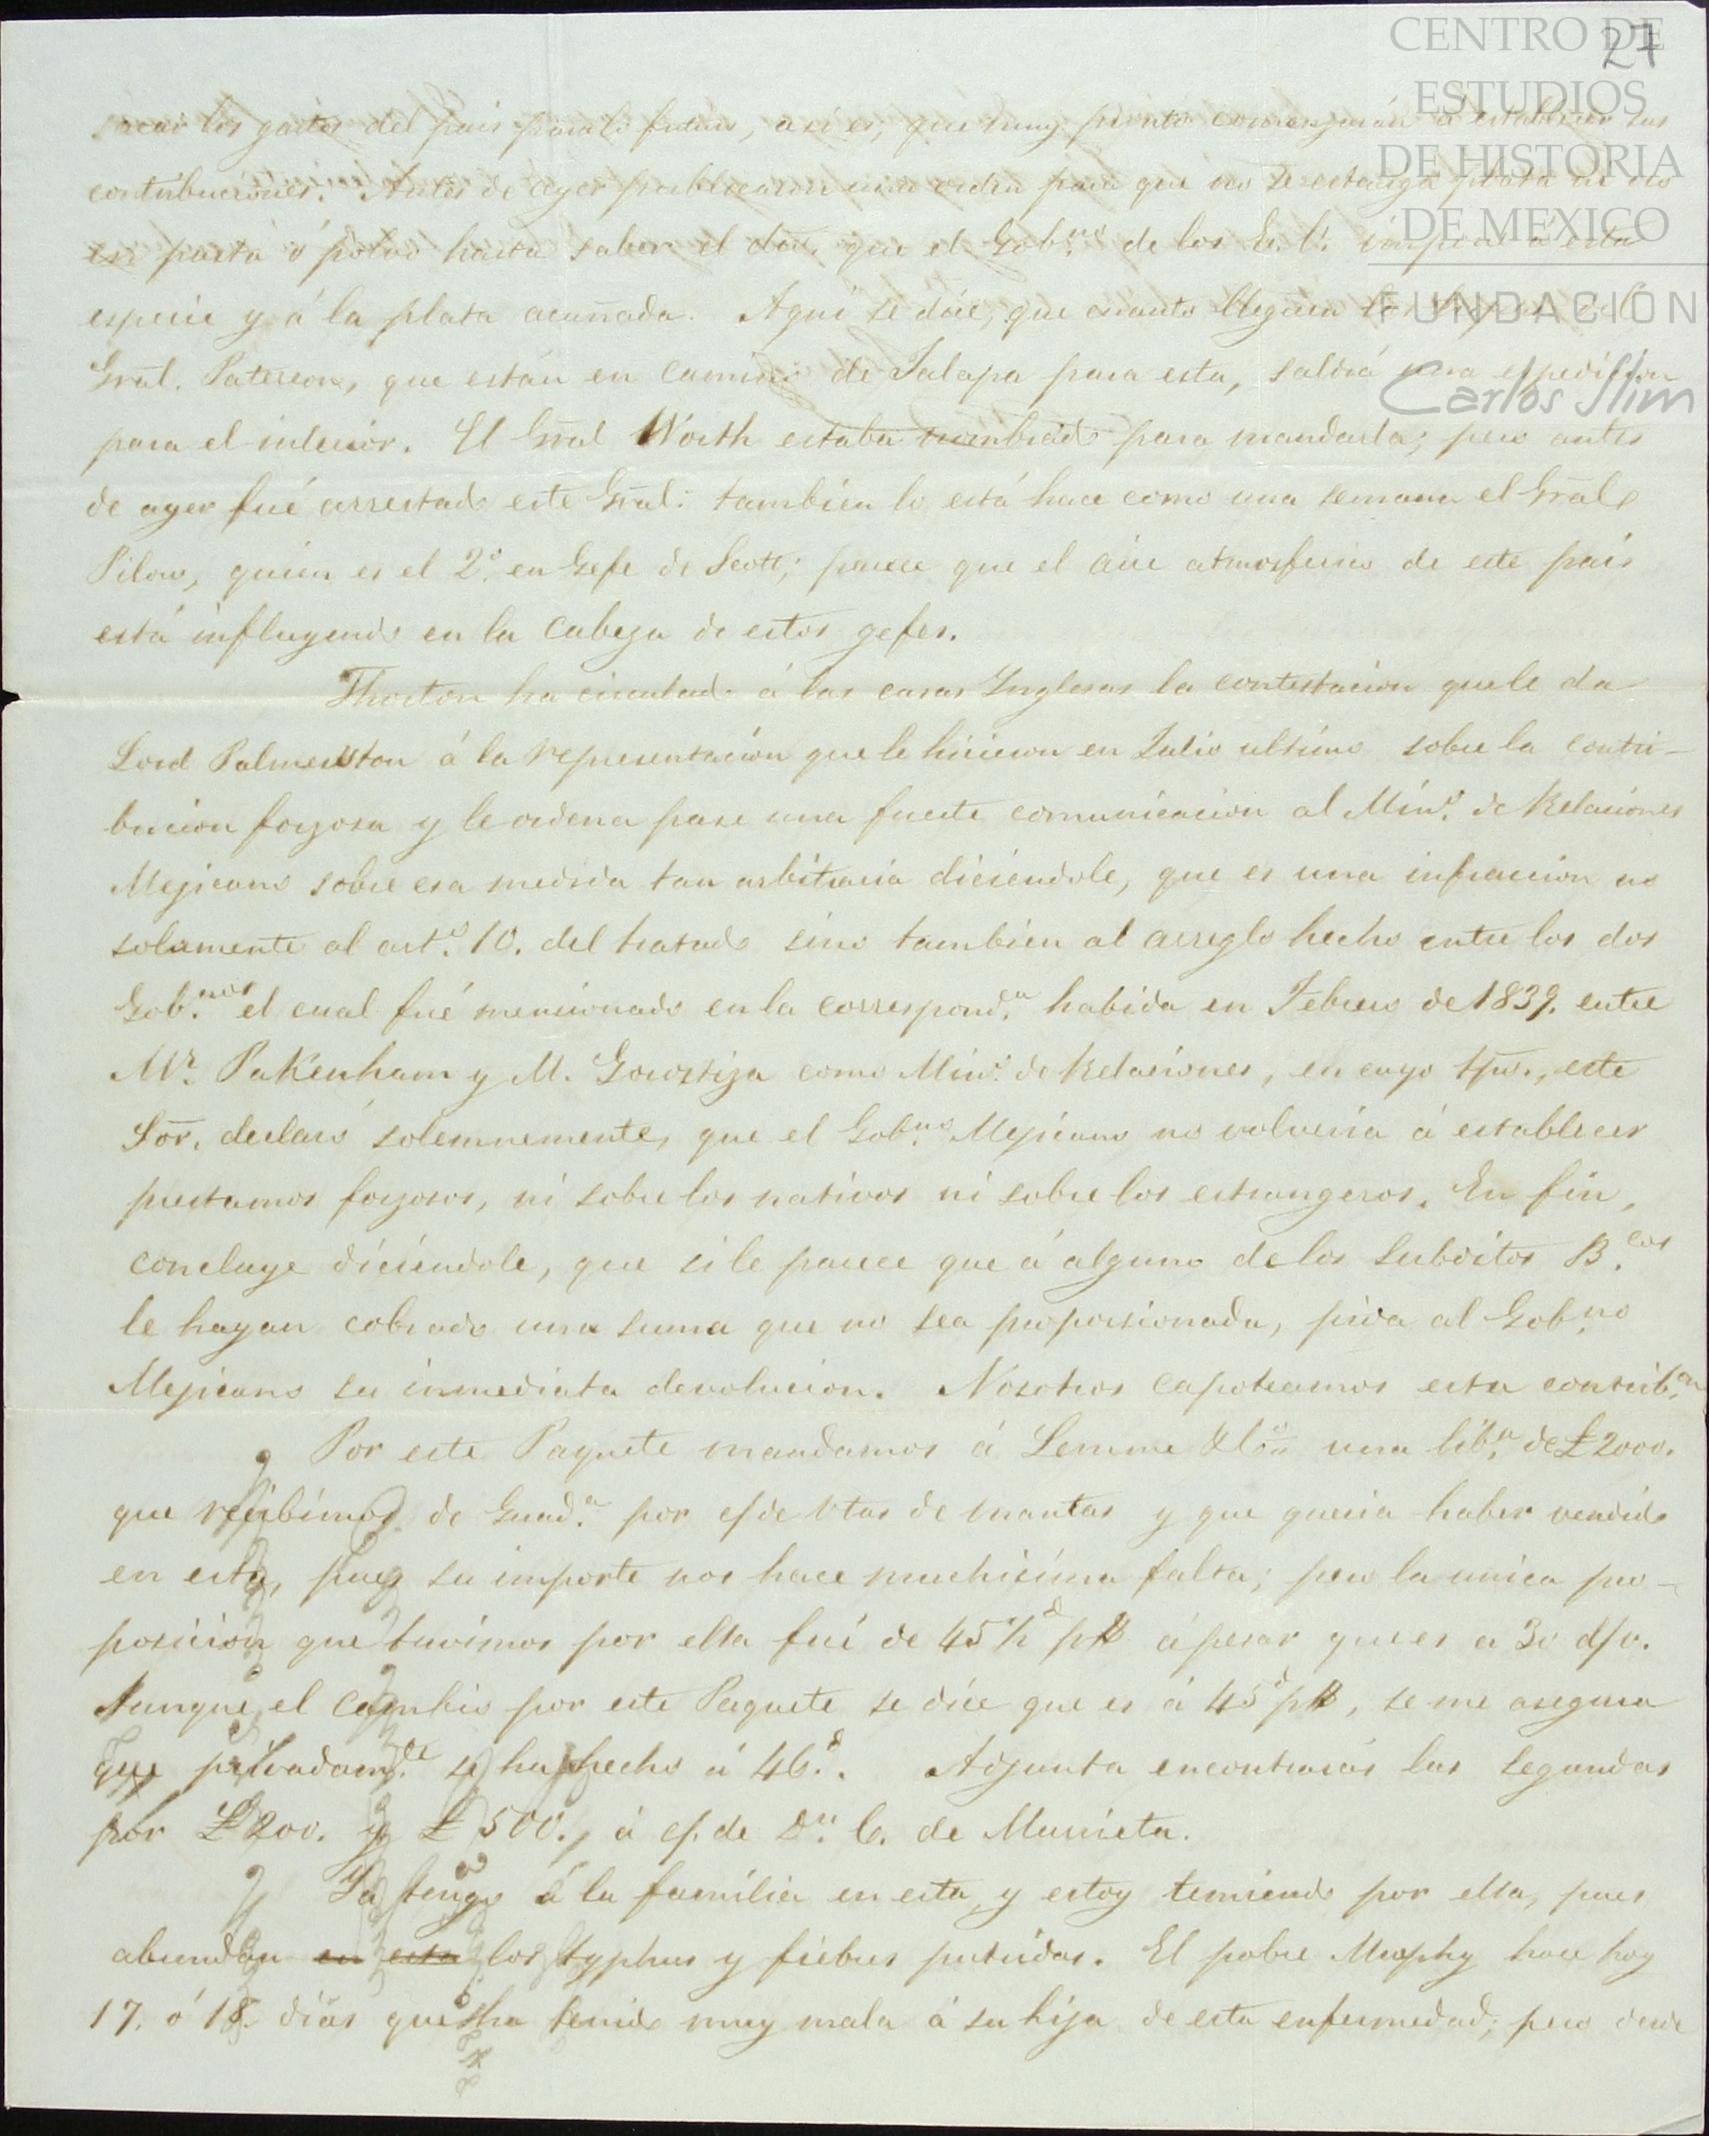 27
CENTRO DE
ESTUDIOS
DE HISTORIA
DE MEXICO
FUNDACIÓN
Carlos Slim
sacar los gastos del pais para lo futuro, asi es, que muy pronto comenzarán á establecer sus
contribuciones. Antes de ayer publicaron una orden para que no se extraiga plata ni oro
en pasta ó polvo hasta saber el dro. que el Gob.no de los E.U. impone á esta
especie y á la plata acuñada. Aqui se dice, que cuanto lleguen las tropas del
Gral. Paterson, que están en camino de Jalapa para esta, saldrá una espedicion
para el interior. El Gral Worth estaba nombrado para mandarla; pero antes
de ayer fué arrestado este Gral: tambien lo está hace como una semana el Gral
Pilow, quien es el 2.o en Gefe de Scott; parece que el aire atmosferico de este pais
está influyendo en la cabeza de estos gefes.
Thorton ha circulado á las casas Inglesas la contestacion que le da
Lord Palmerston á la representacion que le hicieron en Julio ultimo sobre la contri-
bucion forzosa y le ordena pase una fuerte comunicacion al Min.o de Relaciones
Mejicano sobre esa medida tan arbitraria diciendole, que es una infraccion no
solamente al art.o 10. del tratado sino tambien al arreglo hecho entre los dos
Gob.nos el cual fué mencionado en la correspond.a habida en Febrero de 1839. entre
Mr. Pakenham y M. Gorostiza como Min.o de Relaciones, en cuyo tpo., este
Sor. declaró solemnemente, que el Gob.no Mejicano no volveria á establecer
prestamos forzosos, ni sobre los nativos ni sobre los estrangeros. En fin,
concluye diciendole, que si le parece que á alguno de los subditos B.cos
le hayan cobrado una suma que no sea proporcionada, pida al Gob.no
Mejicano su inmediata devolucion. Nosotros capoteamos esta contrib.on
Por este Paquete mandamos á Lemme una lib.a de £2000.
que recibimos de Guad.a por c/ de vtas de mantas y que queria haber vendido
en esta, pues su importe nos hace muchisima falta; pero la unica pro-
posicion que tuvimos por ella fué de 45½ d p$ á pesar que es a 30 d/v.
Aunque el cambio por este Paquete se dice que es á 45 d p$, se me asegura
que privadam.te se ha hecho á 46.d. Adjunta encontrarás las segundas
por £200. y £500., á c/. de Dn. C. de Murrieta.
Ya tengo á la familia en esta, y estoy temiendo por ella, pues
abundan en esta los typhus y fiebres putridas. El pobre Murphy hace hoy
17. ó 18. dias que ha tenido muy mala á su hija de esta enfermedad; pero desde